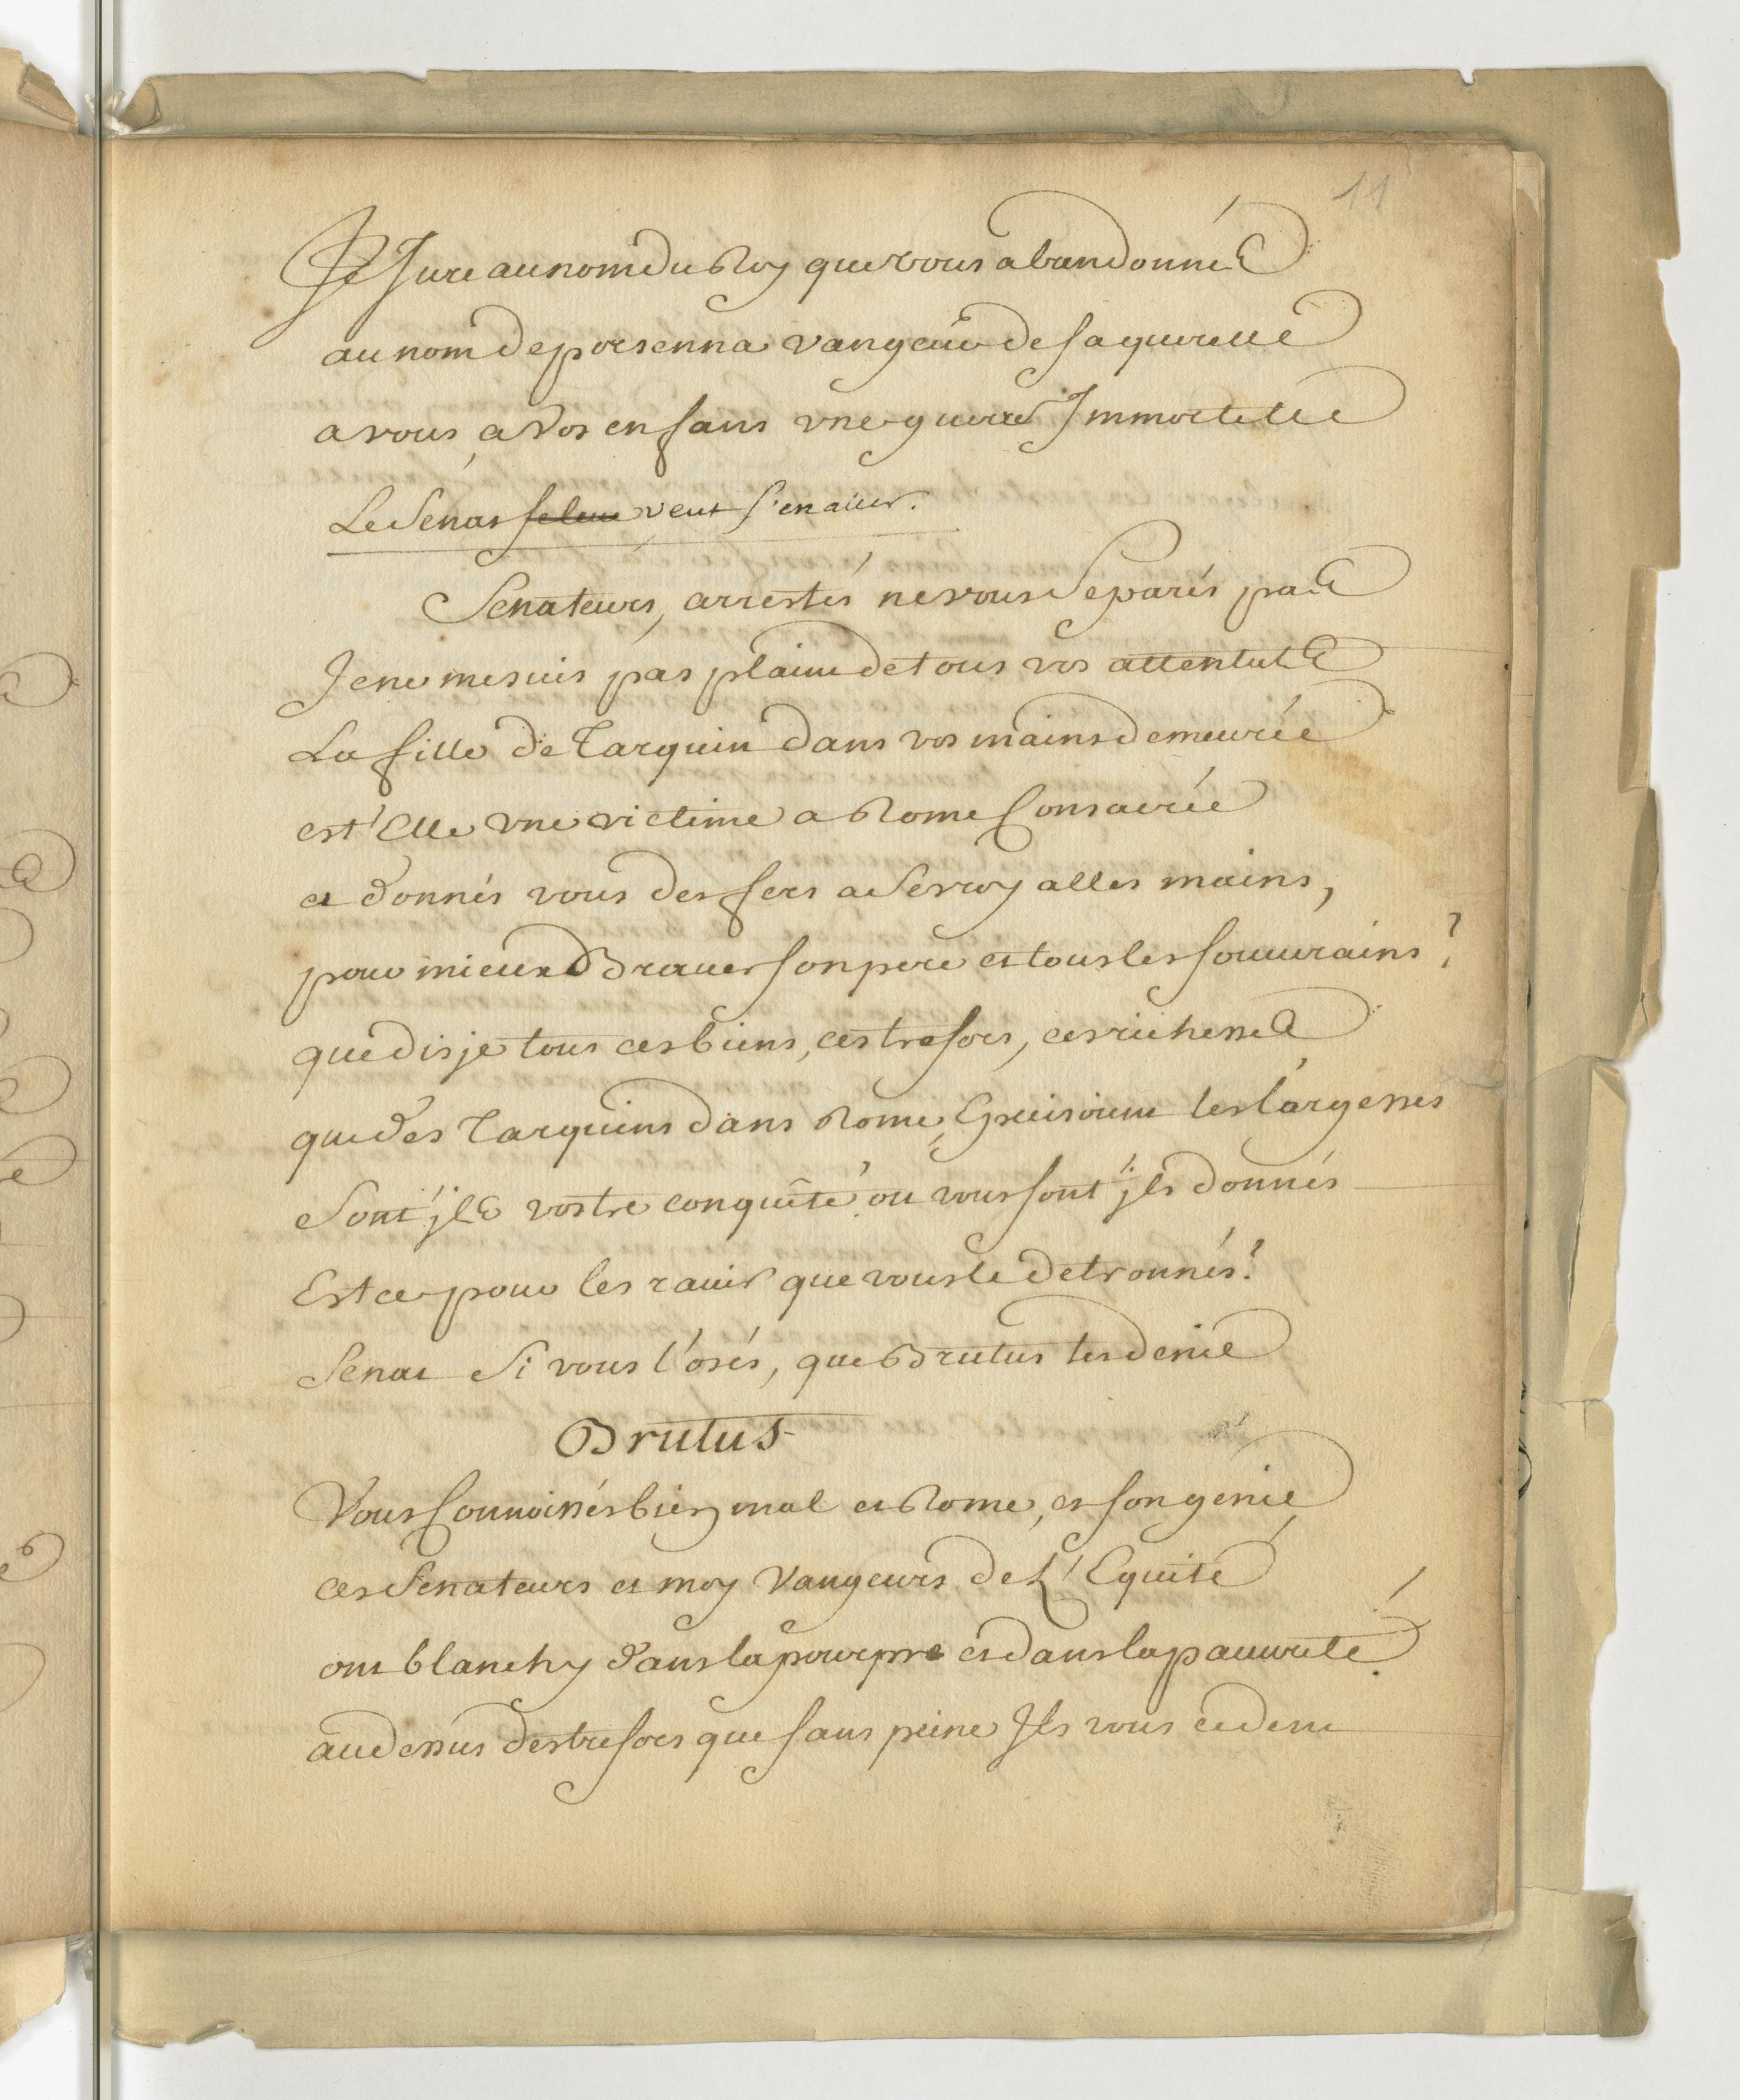 11
Je Jure au nom du Roy que vous abandonnés
au nom de porsenna vangeur de sa querelle
a vous, a vos enfans vne guerre Immortelle
Le Senat se leue veut s'en aller.
Senateurs, arrestés ne vous Separés pas
Je ne me suis pas plaint de tous vos attentats
La fille de Tarquin dans vos mains demeurée
est'Elle vne victime a Rome Consacrée
et donnés vous des fers a Ses royalles mains,
pour mieux Brauer son pere et tous les souuerains?
que dis je tous ces biens, ces tresors, ces richesses
que des Tarquins dans Rome, Epuisoient les largesses
Sont'jls vostre conquête ou vous sont'jls donnés
Est ce pour les rauir que vous le detronnés?
Senat Si vous l'osés, que Brutus les denie
Brutus
Vous Connoissés bien mal et Rome, et son genie
ces Senateurs et moy Vangeurs de L'Equité
ont blanchy dans la pourpre et dans la pauureté.
au dessus des tresors que sans peine Ils vous cedent